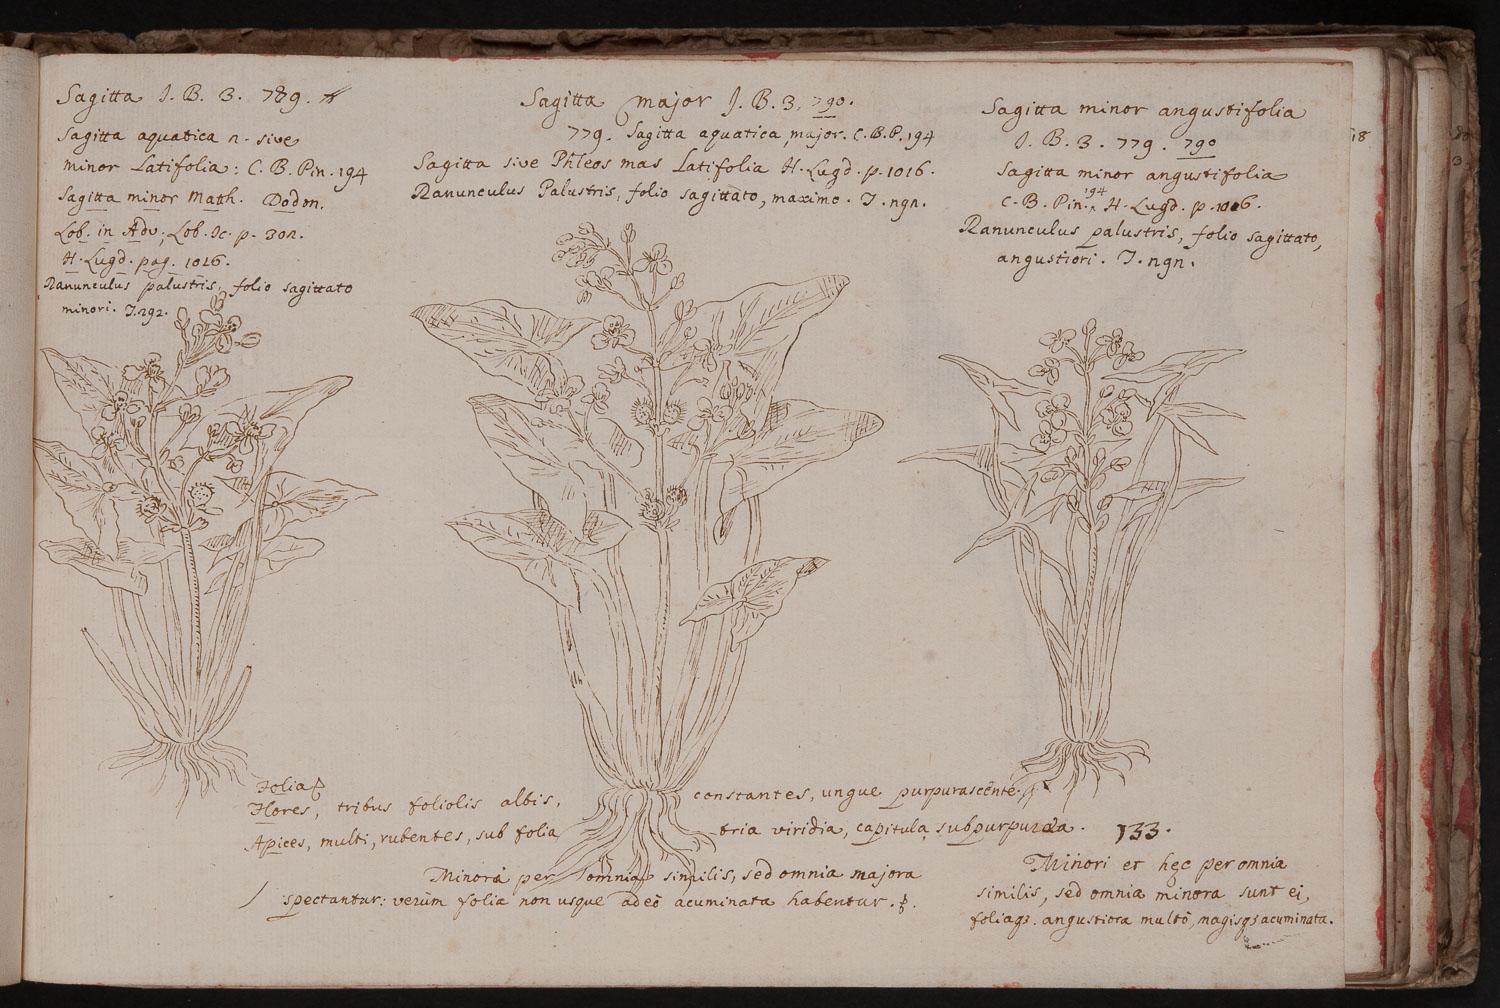 Sagitta J. B. 3. 789.
Sagitta aquatica n. sive
minor Latifolia: C. B. Pin. 194
Sagitta minor Math. Dodon.
Lob. in Adv; Lob. Ic. p. 302.
H. Lugd. pag. 1016.
Ranunculus palustris, folio sagittato
minori. T. 292.
Sagitta major J. B. 3, 790.
779. Sagitta aquatica, major. C. B. P. 194
Sagitta sive Phleos mas Latifolia H. Lugd. p. 1016.
Ranunculus Palustris, folio sagittato, maximo. T. 292.
Sagitta minor angustifolia
J. B. 3. 779. 790
Sagitta minor angustifolia
C. B. Pin. 194 H. Lugd. p. 1016.
Ranunculus palustris, folio sagittato,
angustiori. T. 292.
18
Folia
Flores, tribus foliolis albis, constantes, ungue purpurascente.
Apices, multi, rubentes, sub folia tria viridia, capitula subpurpurea. 133.
Minora per omnia similis, sed omnia majora
spectantur: verùm folia non usque adeò acuminata habentur.
Minori et hęc per omnia
similis, sed omnia minora sunt ei,
foliaq3. angustiora multò, magisq3 acuminata.